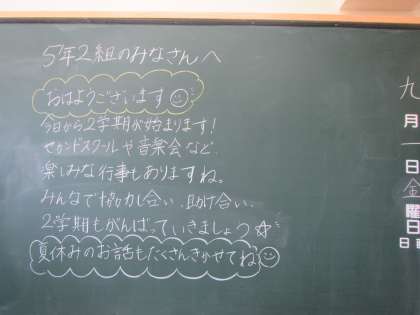 5年2組のみなさんへ
おはようございます
今日から2学期が始まります！
セカンドスクールや音楽会など、
楽しみな行事もありますね。
みんなで協力し合い、助け合い、
2学期もがんばっていきましょう☆
夏休みのお話もたくさんきかせてね
九
月
一
日
金
曜
日
日直